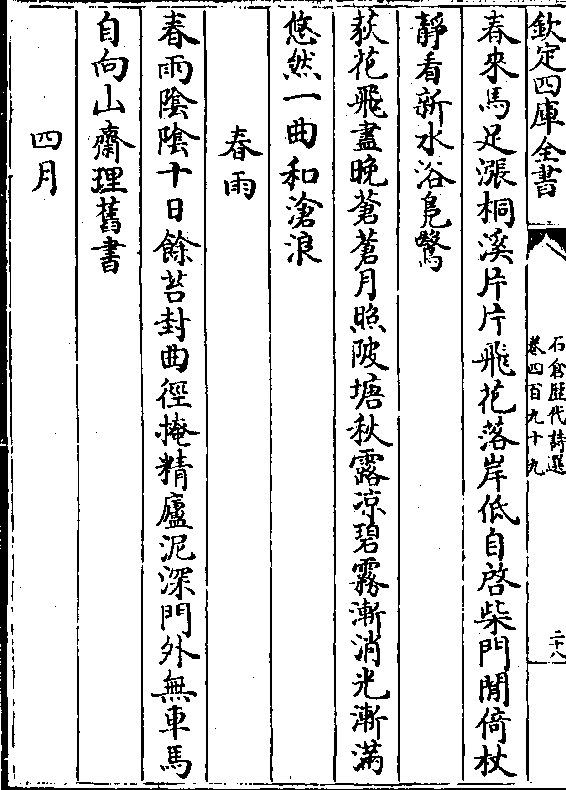 欽定四庫全書
石倉歴代詩選
卷四百九十九
二十八
春來馬足漲桐溪片片飛花落岸低自啓柴門閒倚杖
靜看新水浴鳬鷖
荻花飛盡晚蒼蒼月照陂塘秋露凉碧霧漸消光漸滿
悠然一曲和滄浪
春雨
春雨陰陰十日餘苔封曲徑掩精廬泥深門外無車馬
自向山齋理舊書
四月